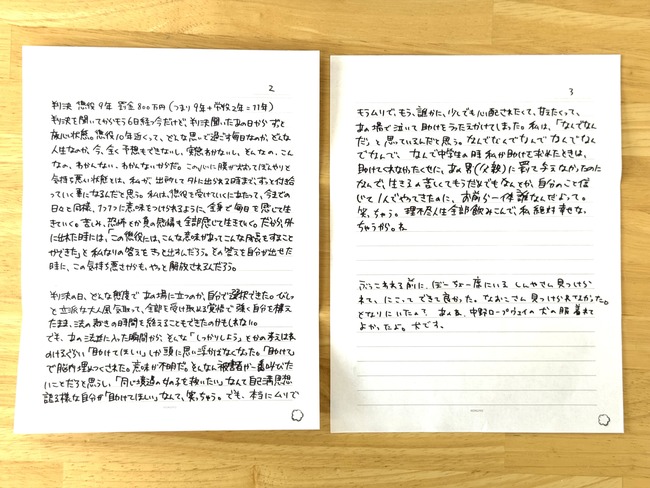 2
判決 懲役9年 罰金800万円(つまり9年+労役2年=11年)
判決を聞いてからもう6日経つ今だけど、判決聞いたあの日からずっと
放心状態。懲役10年近くって、どんな思いで過ごす毎日なのか、どんな
人生なのか、今、全く予想もできないし、実感わかないし、どんなの、こん
なの、わかんない。わかんないからだ。この心に膜が太れてぼんやりと
気持ち悪い状態とは、私が、出所して外に出れる時まで、ずっと付き合
っていく事になるんだと思う。私は、懲役を受けていくにあたって、今までの
日々と同様、1つ1つに意味をつけられるように、全身で毎日を感じて生
きていく。苦しみ、恐怖とか負の感情も全部感じて生きていく。だから、外
に出れた時には、「この懲役には、こんな意味があってこんな成長をすること
ができた」と私なりの答えをきっと出すんだろう。その答えを自分が出せた
時に、この気持ち悪さからも、やっと解放されるんだろう。
判決の日、どんな態度であの場に立つのか、自分で選択できた。びしっ
と立派な大人風気取って、全部を受け止める覚悟で強く自分を構え
たまま、法の裁きの時間を終えることもできたのかもしれない。
でも、あの法廷に入った瞬間から、どんな「しっかりしよう」とかの考えはま
ぬけるくらい「助けてほしい」しか頭に思い浮かばなくなった。「助けて」
で脳内埋めつくされた。意味が不明だ。そんなん被害者が一番叫びた
いことだろうと思うし、「同じ境遇の女の子を救いたい」なんて自己満思想
語る様な自分が「助けてほしい」なんて、笑っちゃう。でも、本当にムリで
3
もうムリで、もう、誰かに、少しでも心配されたくて、甘えたくって、
あの場で泣いて助けをうったえかけてしまった。私は、「なんでなん
だ」と思っているんだと思う。なんでなんでなんで なんでなん
でなんで、なんで中学生の時 私が助けを求めたときは、
助けてくれなかったくせに、あの男(父親)に罰を与えなかったのに
なんで、生きるの苦しくてもうだめでもなんとか、自分のこと信
じて1人でやってきたのに、お前ら一体誰なんだよって。
笑っちゃう。理不尽人生全部飲みこんで、私絶対幸せな
っちゃうから。ね
ぶっこわれる前に、ぼーちょー席にいる しんやさん見つけら
れて、にこって できて良かった。なおこさん見つけられてなかった。
となりにいたんで あぁあ、中野ロープウェイの犬の服着ま
でよかったよ。犬です。